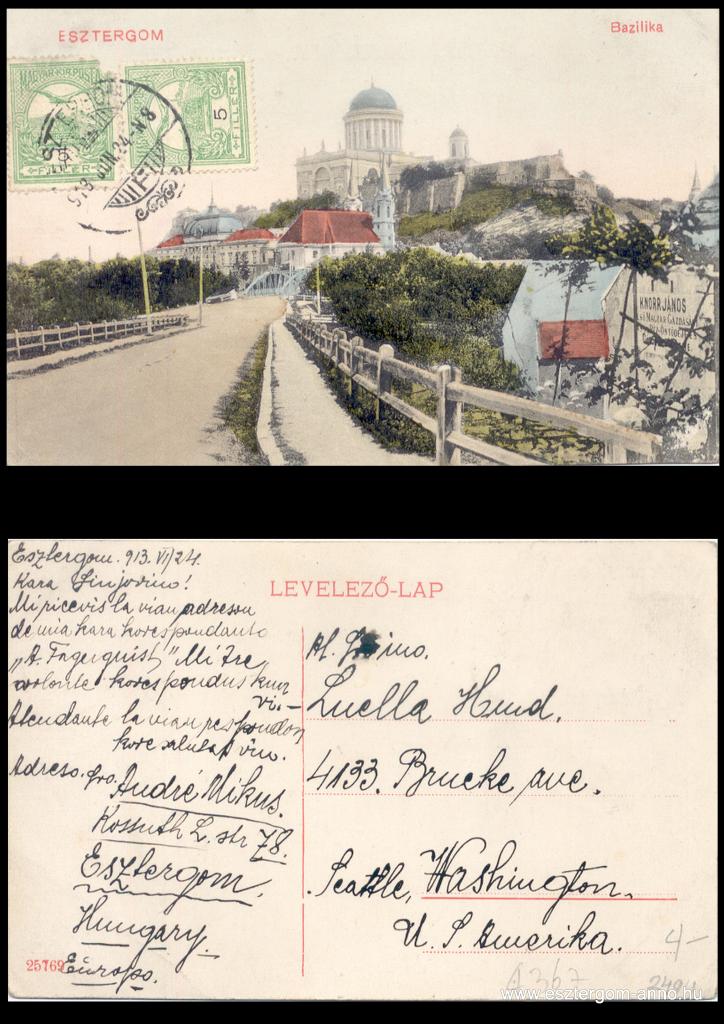 ESZTERGOM
Bazilika
MAGYAR KIR. POSTA
5
FILLER
5
FILLER
KNORR JÁNOS
MAGYAR GAZDASÁ
Esztergom. 913. VI/24.
Kara Sinjorino!
Mi ricevis la vian adreson
de mia kara korespondanto
„A. Fagerquist” Mi tre
volonte korespondus kun
vi.—
Atendante la vian respondon
kore salutas vin.
Adreso. Sro. André Mikus.
Kossuth L. str 78.
Esztergom.
Hungary.
Europo.
25769
LEVELEZŐ-LAP
Luella Hund.
4133. Brucke ave.
Seattle, Washington.
U. S. Amerika.
4—
A 367
www.esztergom-anno.hu